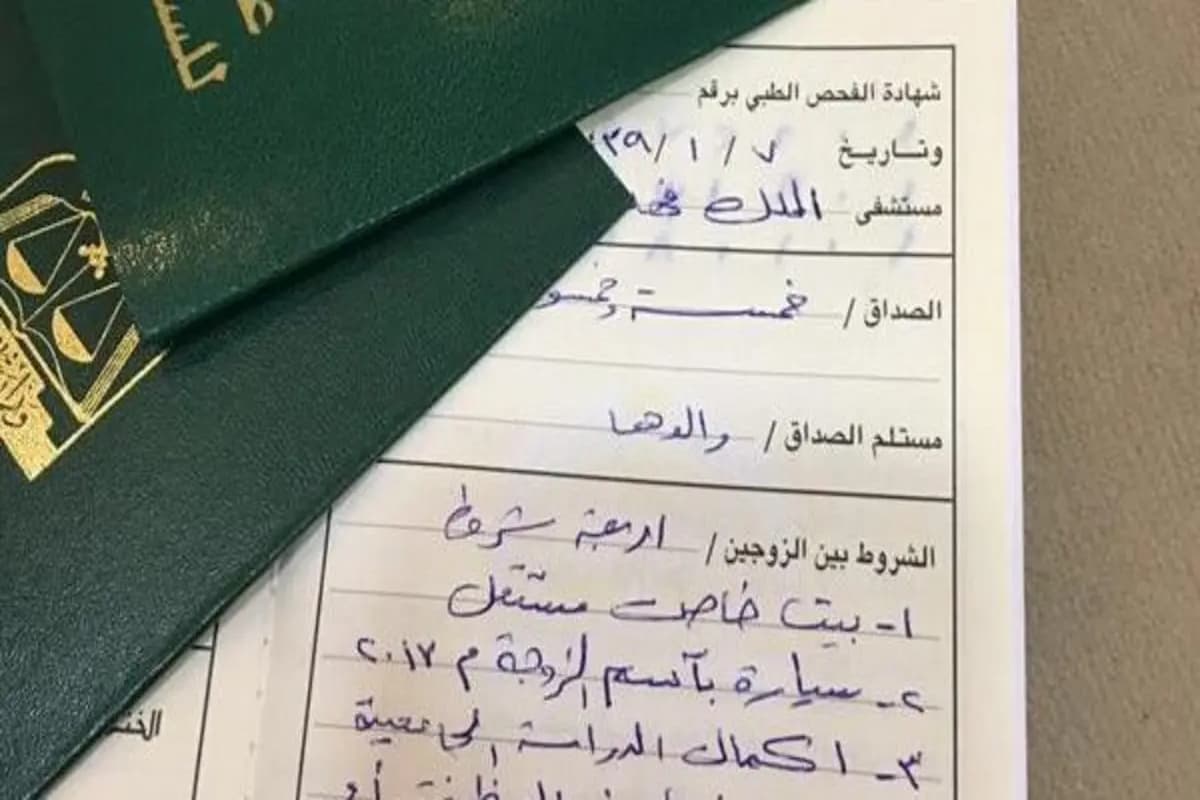 شهادة الفحص الطبي برقم
وتاريخ ٧ / ١ / ٣٩
مستشفى الملك فهد
الصداق / خمسة وخمسو
مستلم الصداق / والدها
الشروط بين الزوجين / اربعة شروط
١- بيت خاص مستقل
٢- سيارة بآسم الزوجة م ٢٠١٧
٣- اكمال الدراسة الجامعية
أو